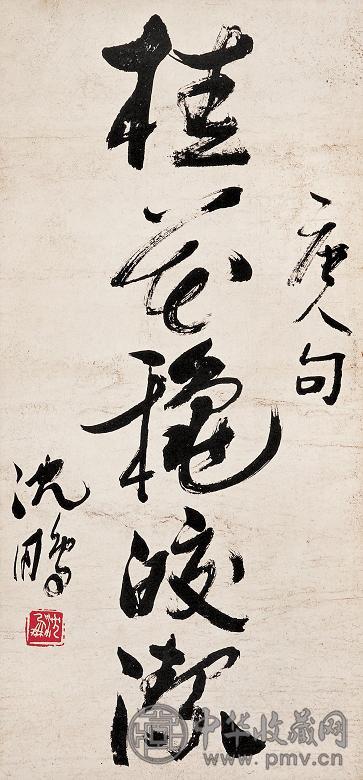 桂花穐皎潔
唐人句
沈鵬
中华收藏网
www.pmv.cn